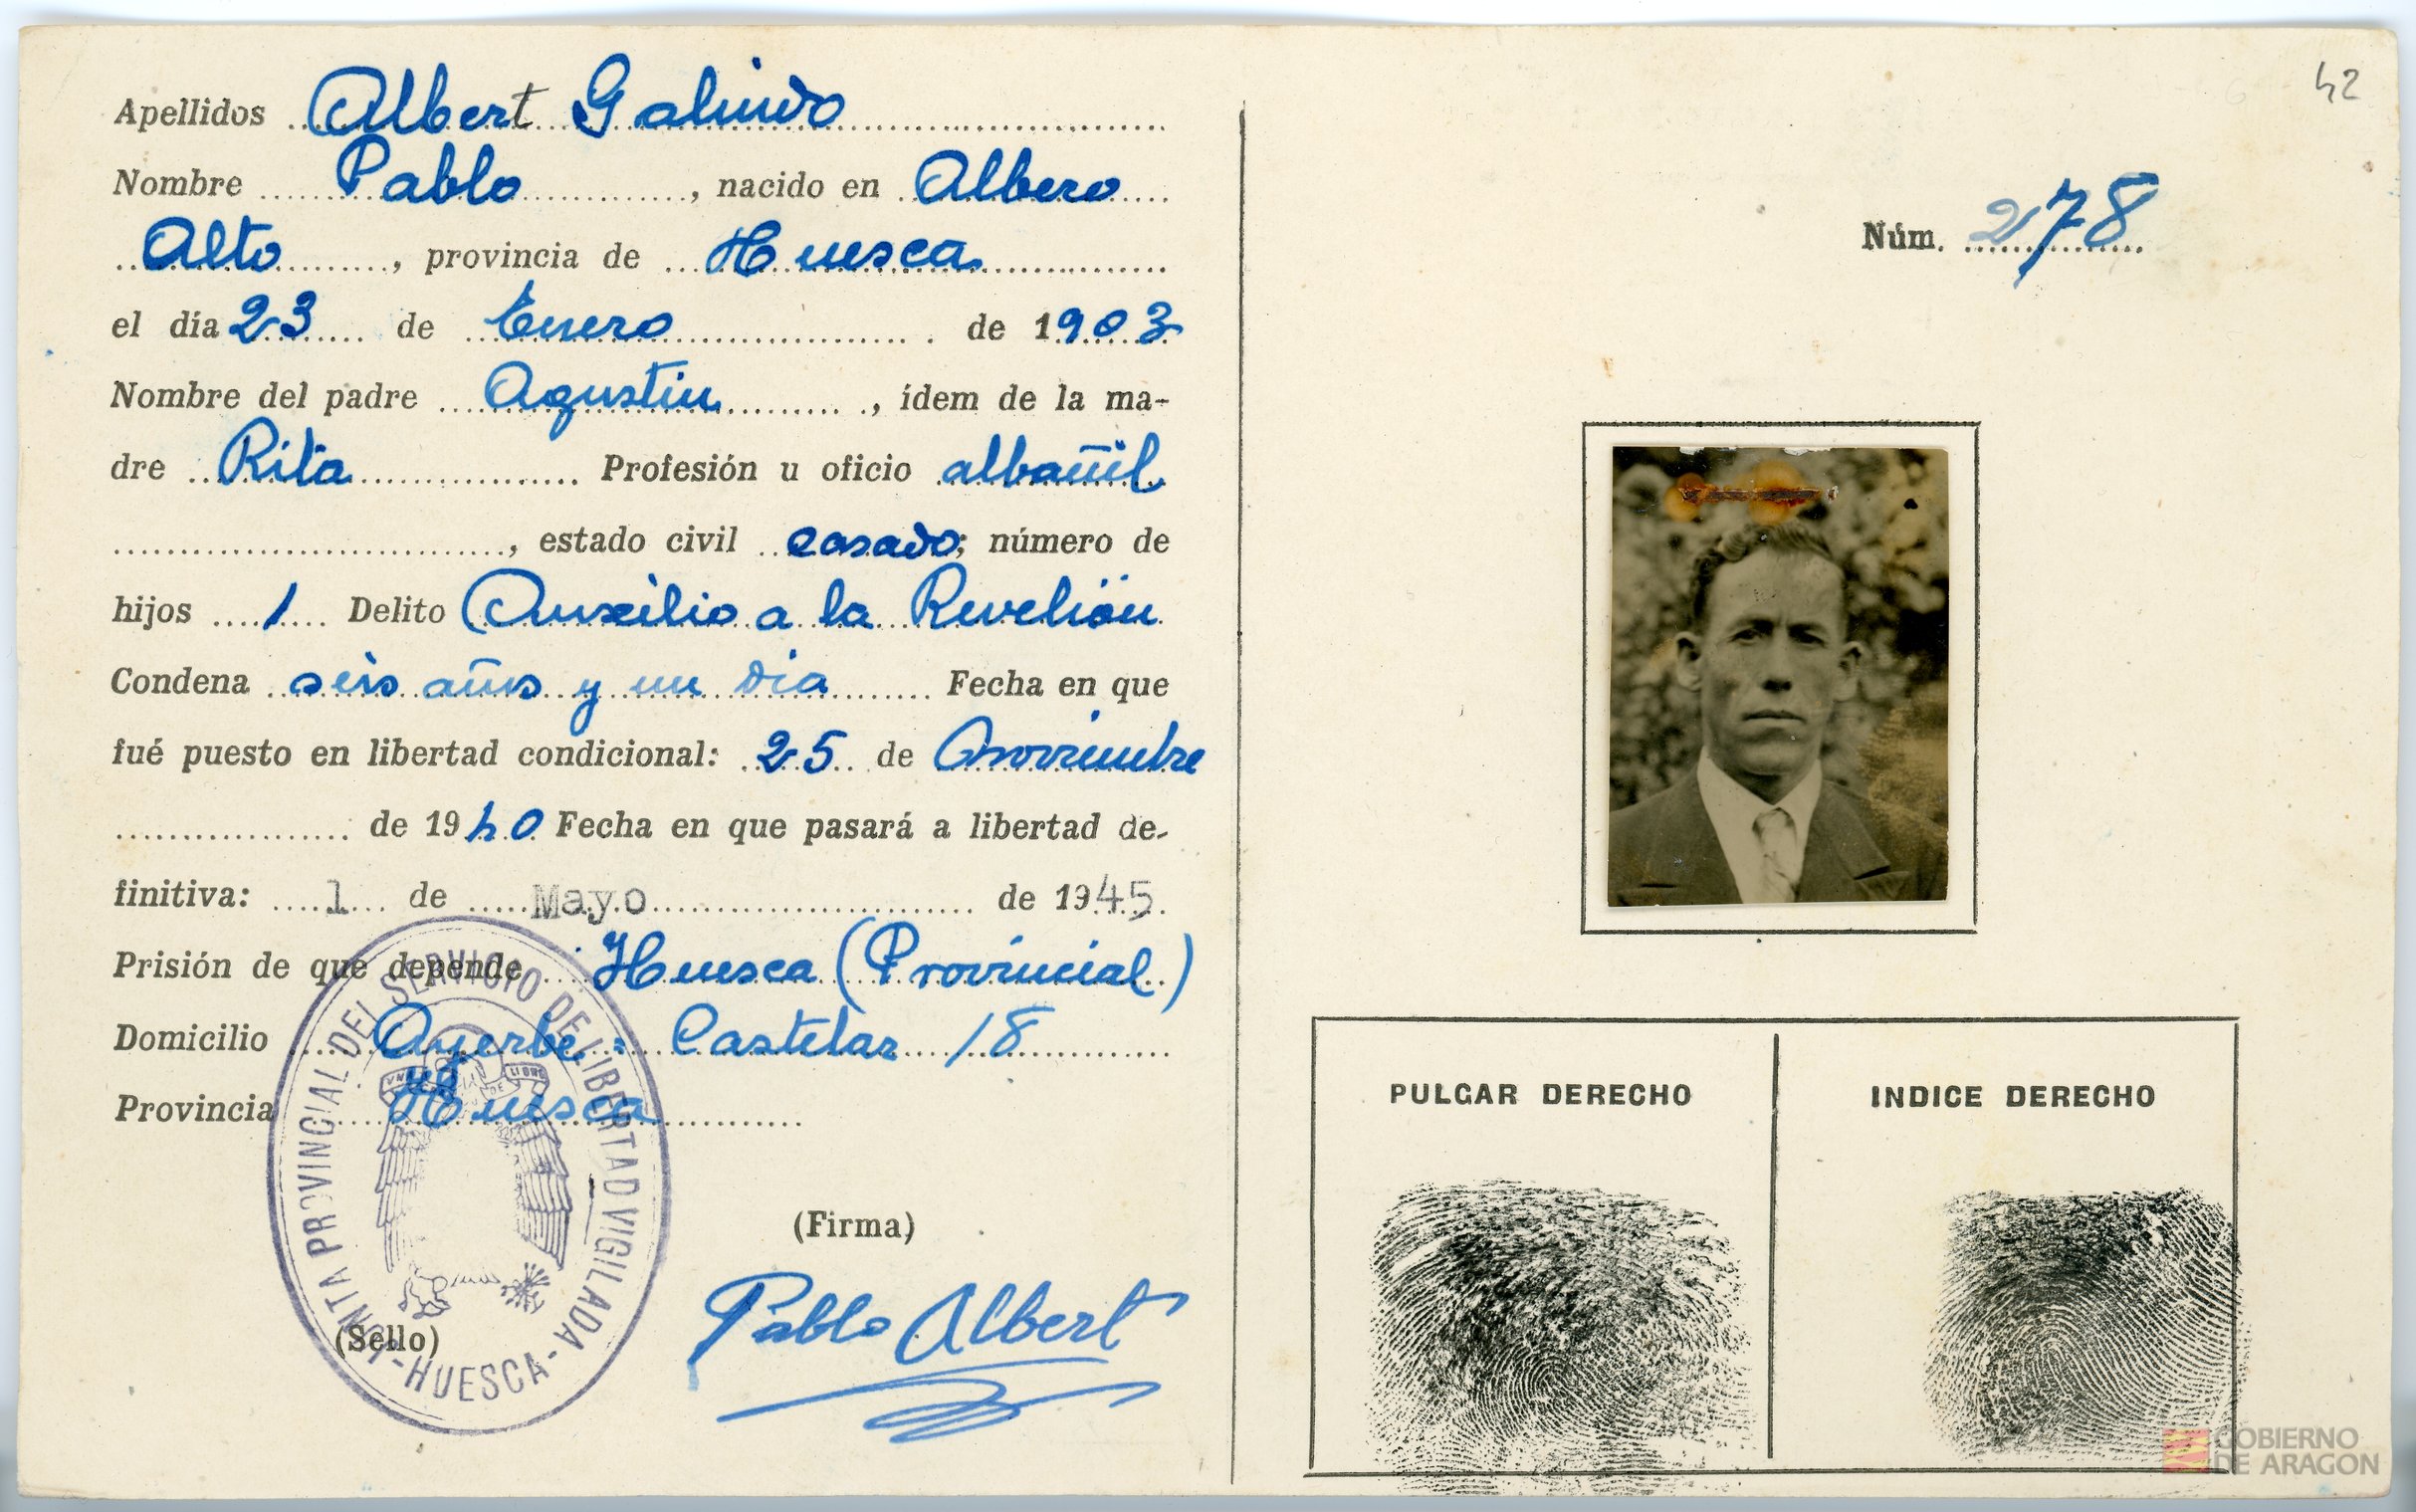 42
Apellidos Albert Galindo
Nombre Pablo, nacido en Albero
Alto, provincia de Huesca
el día 23 de Enero de 1903
Nombre del padre Agustin, ídem de la ma-
dre Rita Profesión u oficio albañil
, estado civil casado; número de
hijos 1 Delito Auxilio a la Revelión
Condena seis años y un dia Fecha en que
fué puesto en libertad condicional: 25 de Noviembre
de 1940 Fecha en que pasará a libertad de-
finitiva: 1 de Mayo de 1945
Prisión de que depende Huesca (Provincial)
Domicilio Ayerbe = Castelar 18
Provincia Huesca
(Firma)
Pablo Albert
(Sello)
JUNTA PROVINCIAL DEL SERVICIO DE LIBERTAD VIGILADA
-HUESCA-
Núm. 278
PULGAR DERECHO
INDICE DERECHO
GOBIERNO
DE ARAGON